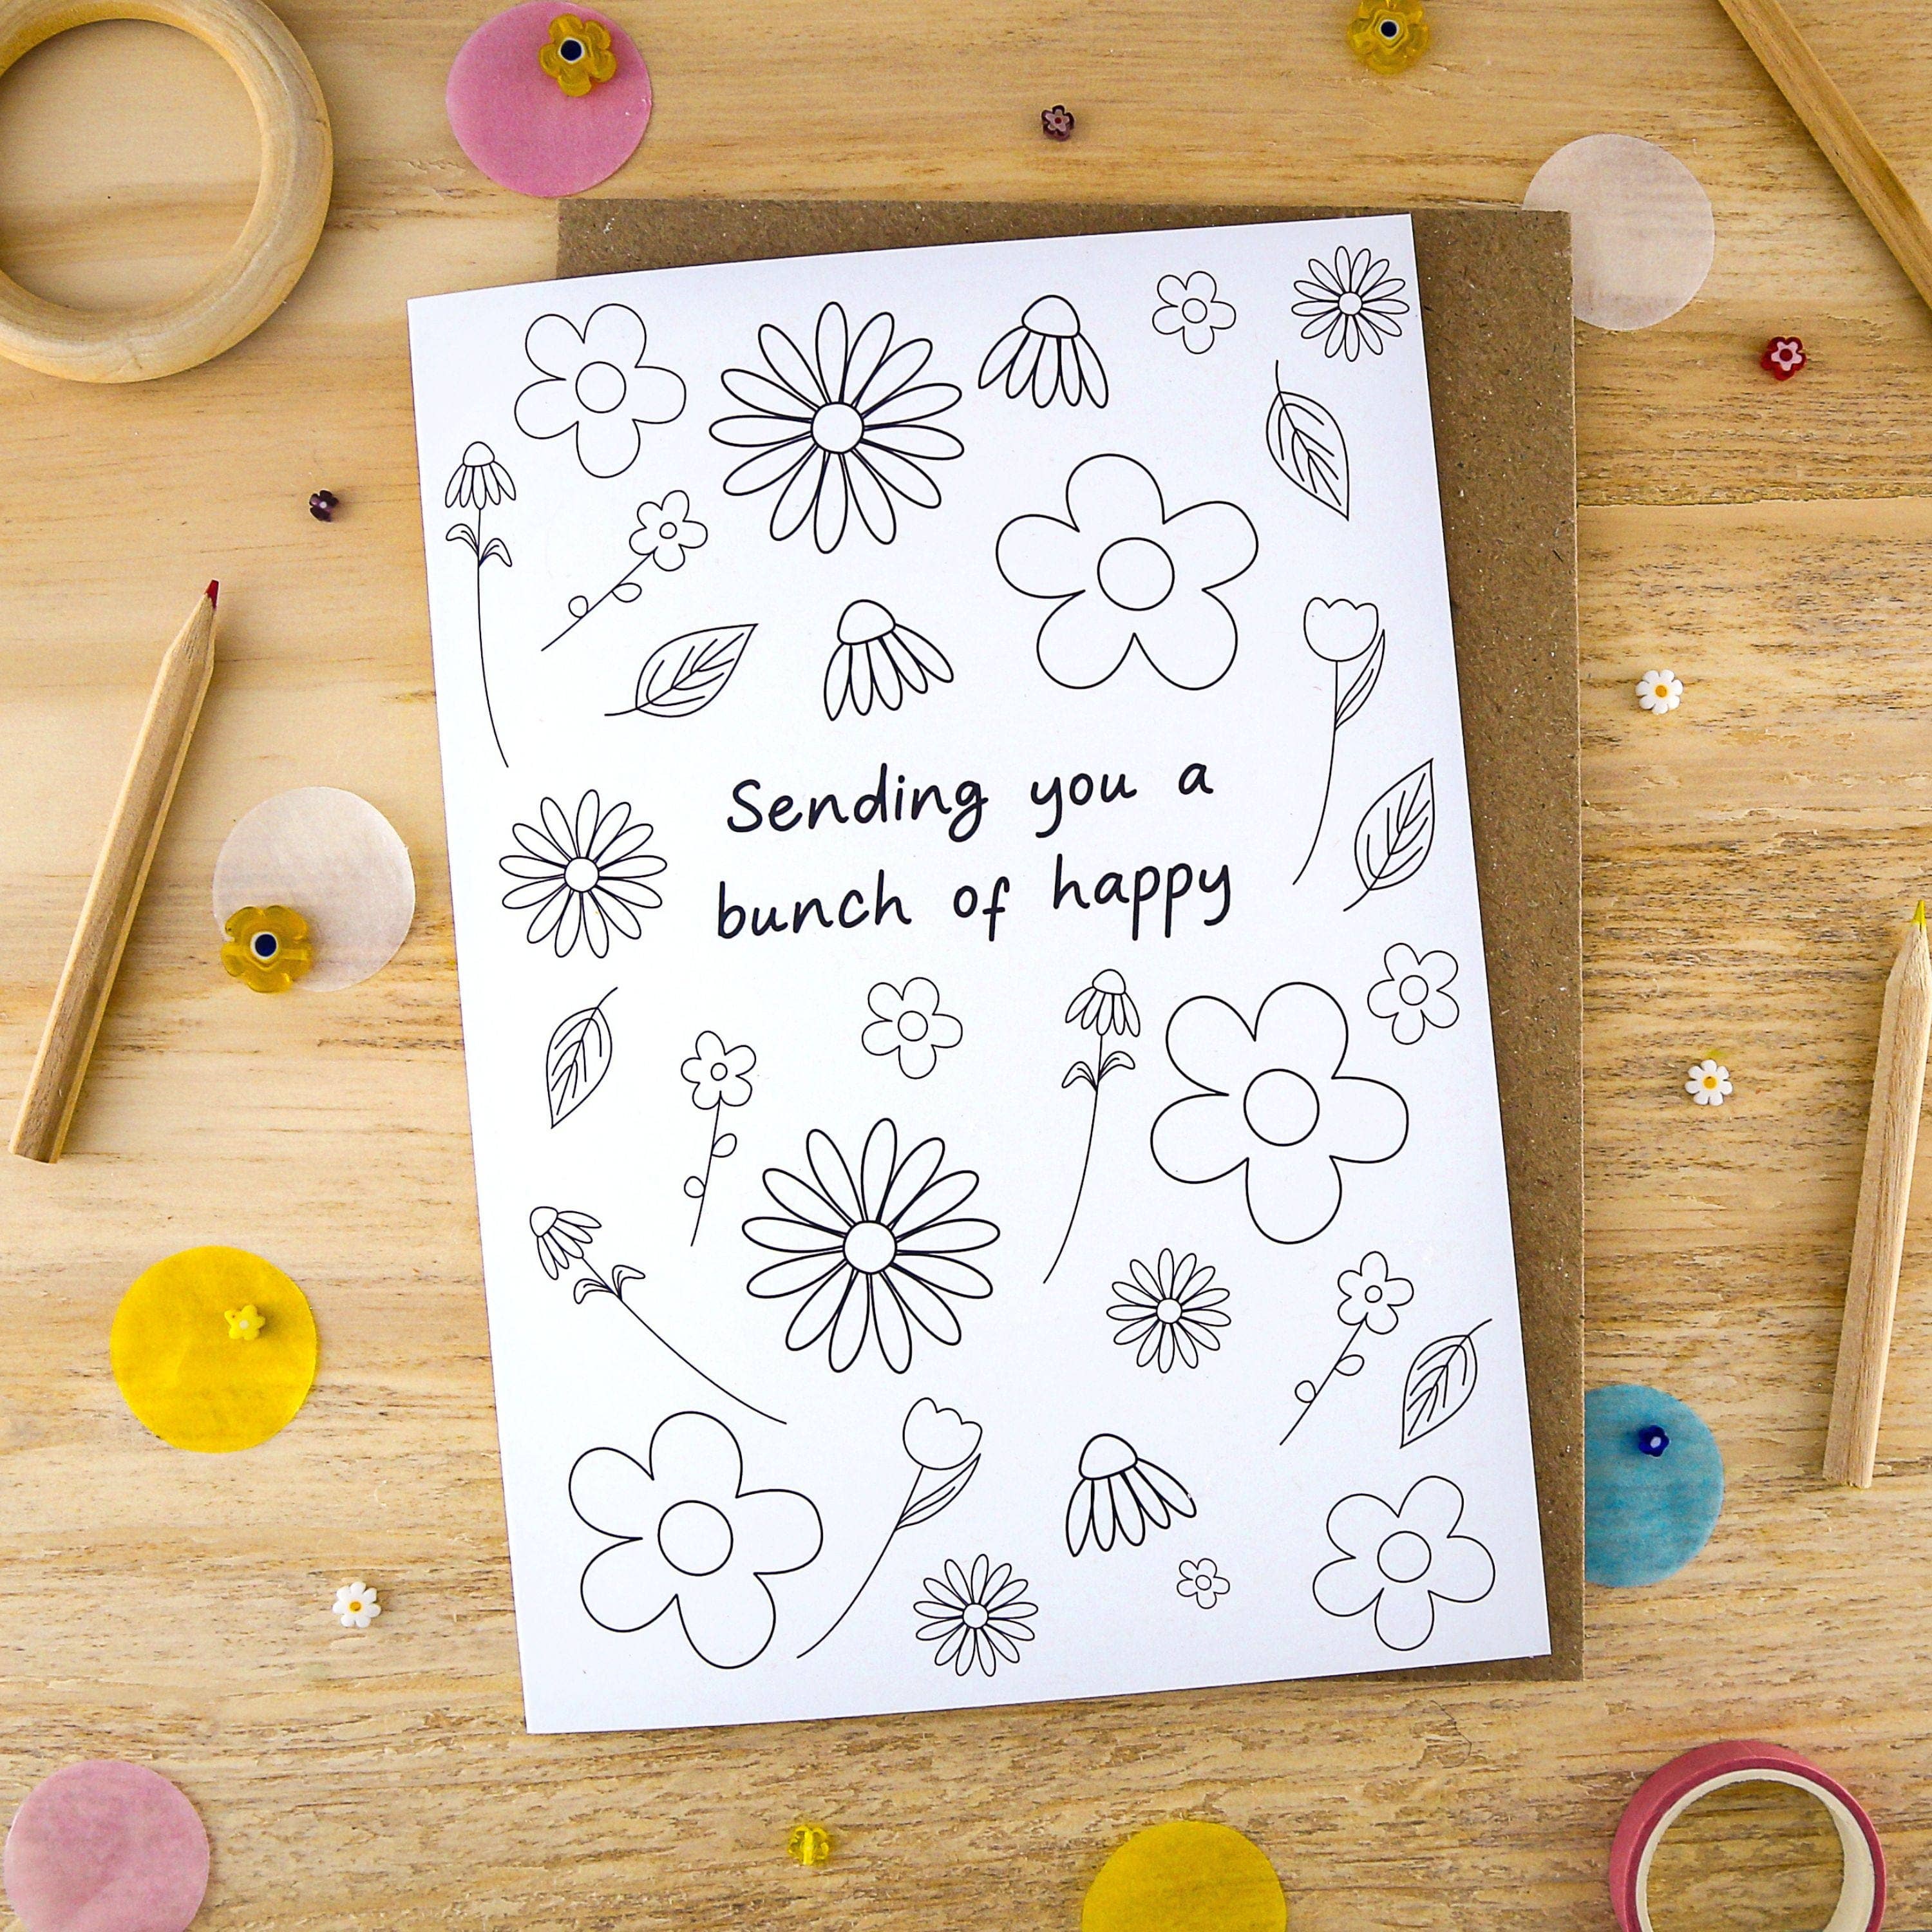 Sending you a
bunch of happy